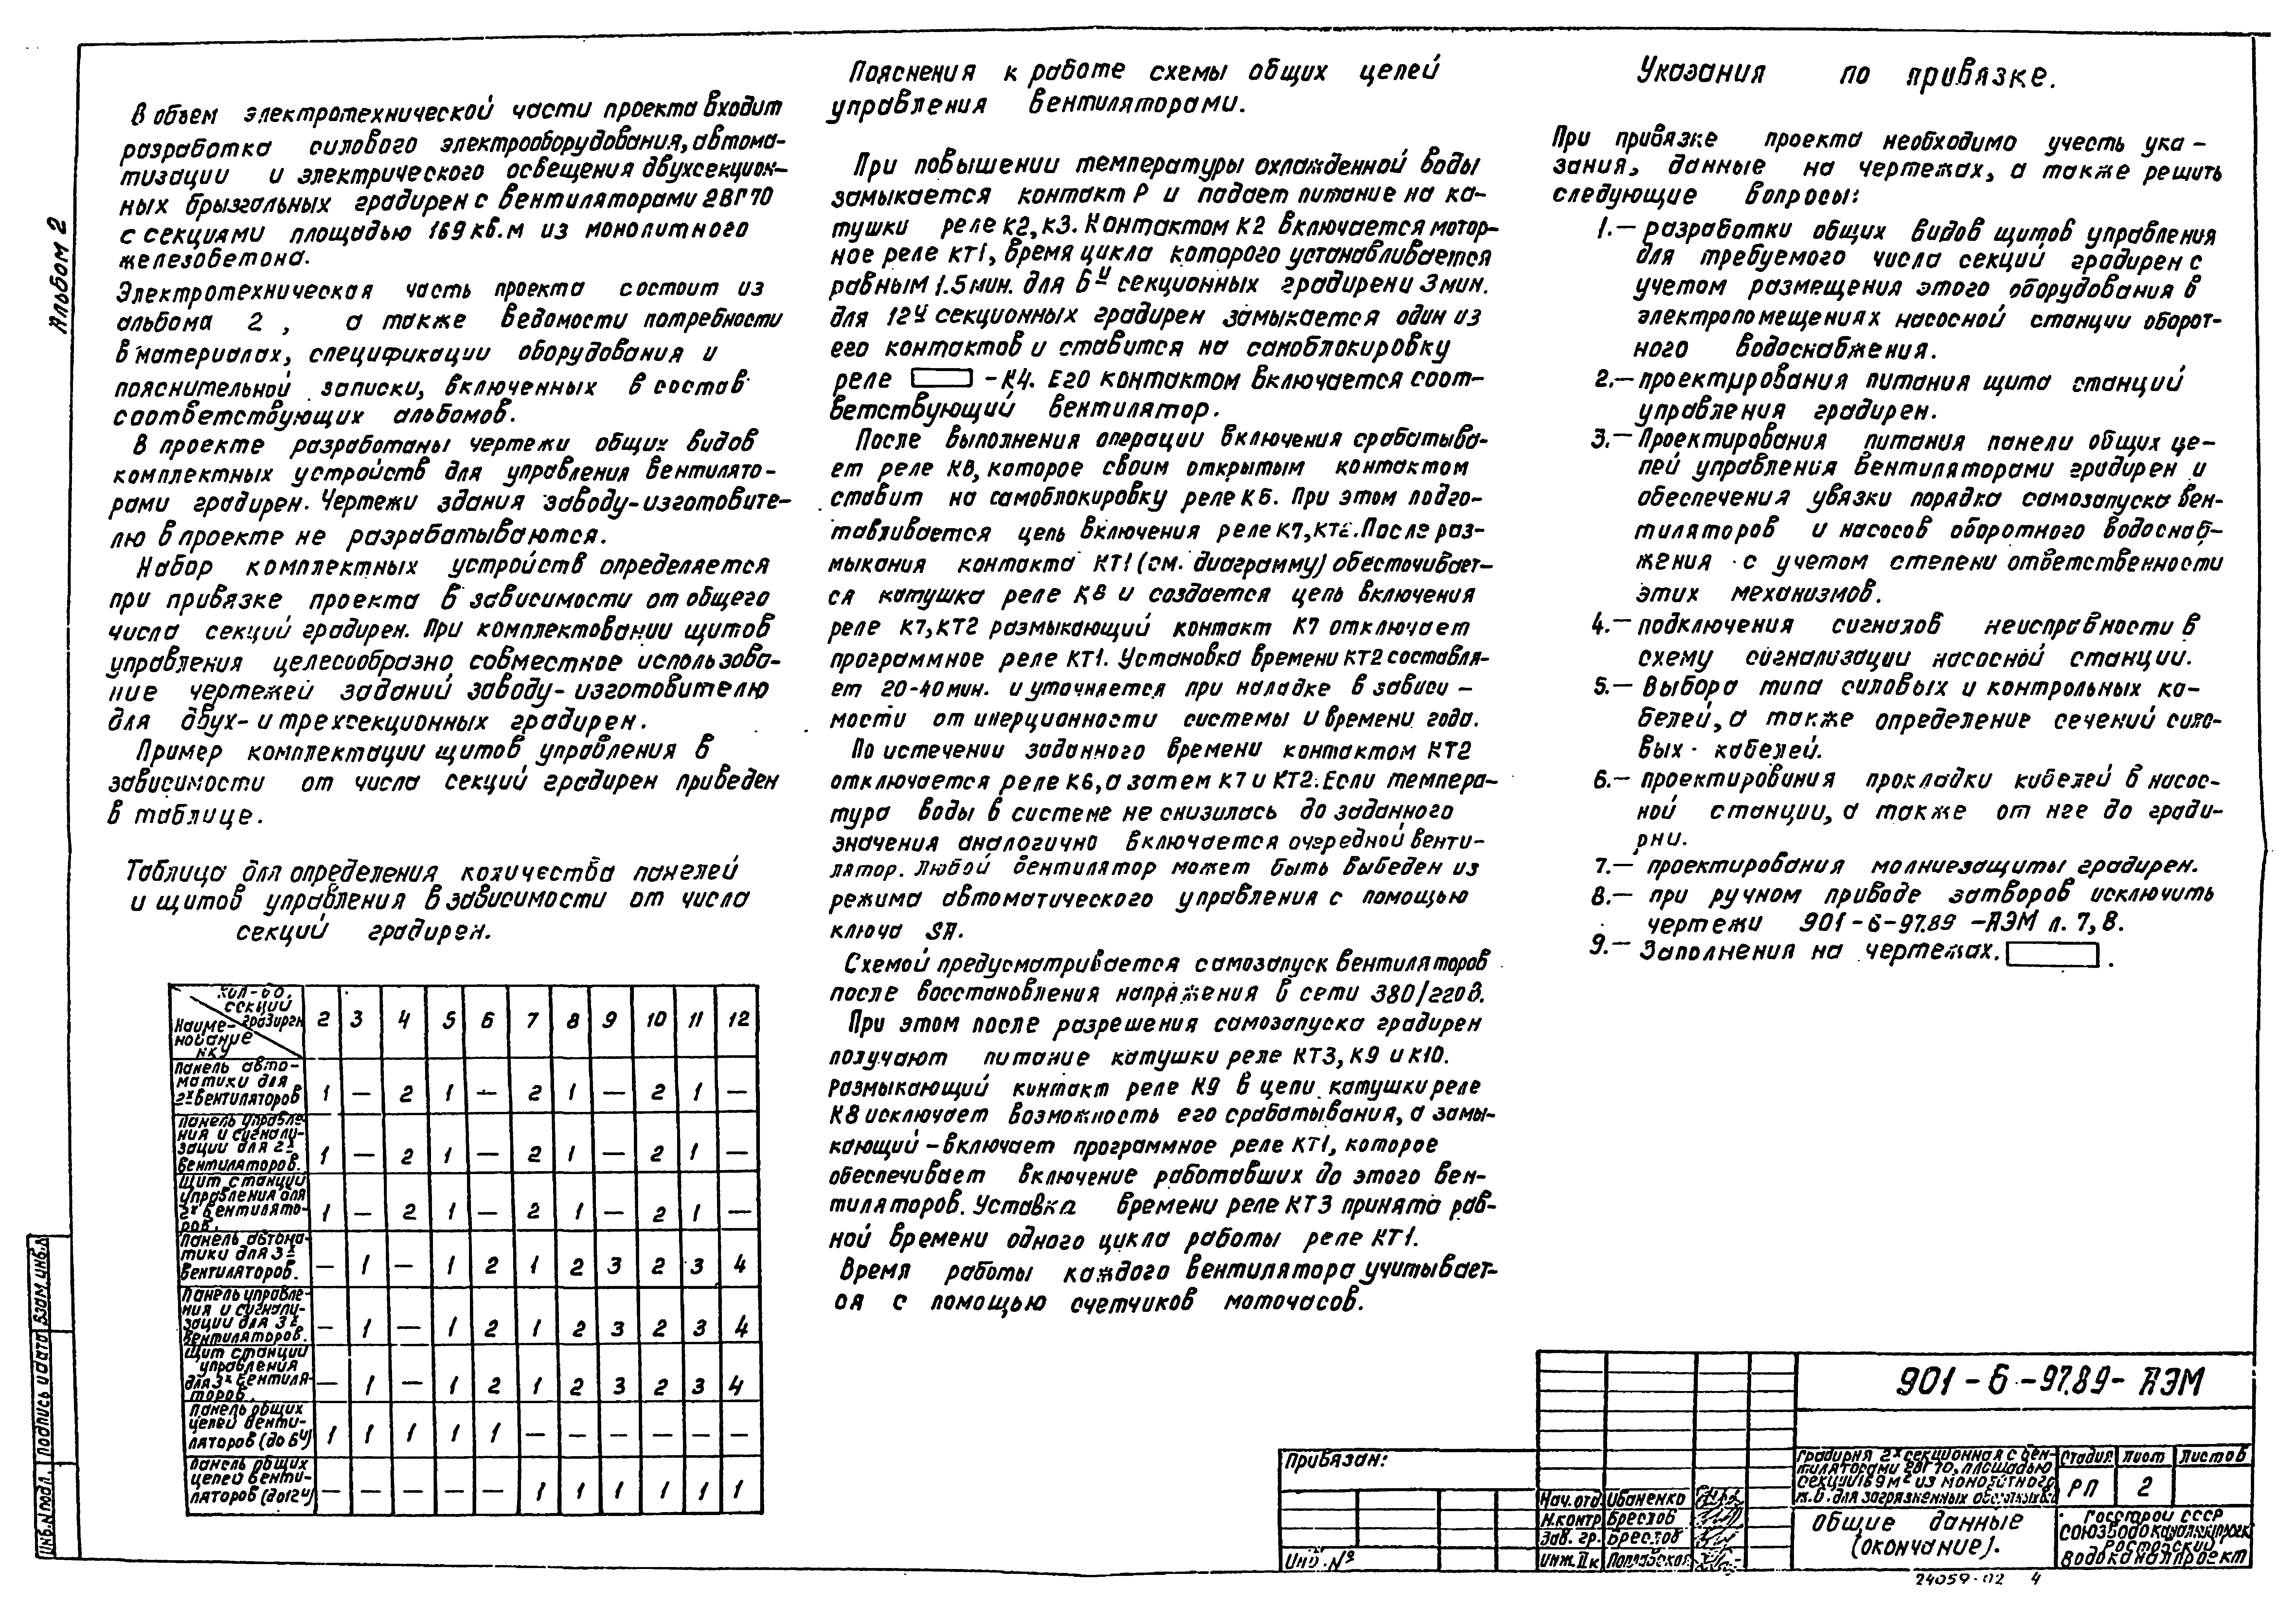 Альбом 2
В объем электротехнической части проекта входит
разработка силового электрооборудования, автома-
тизации и электрического освещения двухсекцион-
ных брызгальных градирен с вентиляторами 2ВГ70
с секциями площадью 169 кв.м из монолитного
железобетона.
Электротехническая часть проекта состоит из
альбома 2, а также ведомости потребности
в материалах, спецификации оборудования и
пояснительной записки, включенных в состав
соответствующих альбомов.
В проекте разработаны чертежи общих видов
комплектных устройств для управления вентилято-
рами градирен. Чертежи здания заводу-изготовите-
лю в проекте не разрабатываются.
Набор комплектных устройств определяется
при привязке проекта в зависимости от общего
числа секций градирен. При комплектовании щитов
управления целесообразно совместное использова-
ние чертежей заданий заводу-изготовителю
для двух- и трехсекционных градирен.
Пример комплектации щитов управления в
зависимости от числа секций градирен приведен
в таблице.
Таблица для определения количества панелей
и щитов управления в зависимости от числа
секций градирен.
Кол-во, секций градирен
Наименование НКУ
2 3 4 5 6 7 8 9 10 11 12
Панель авто-
матики для
2х вентиляторов 1 — 2 1 — 2 1 — 2 1 —
Панель управле-
ния и сигнали-
зации для 2х
вентиляторов. 1 — 2 1 — 2 1 — 2 1 —
Щит станций
управления для
2х вентилято-
ров. 1 — 2 1 — 2 1 — 2 1 —
Панель автома-
тики для 3х
вентиляторов. — 1 — 1 2 1 2 3 2 3 4
Панель управле-
ния и сигнали-
зации для 3х
вентиляторов. — 1 — 1 2 1 2 3 2 3 4
Щит станций
управления
для 3х вентиля-
торов. — 1 — 1 2 1 2 3 2 3 4
Панель общих
цепей венти-
ляторов (до 6и) 1 1 1 1 1 — — — — — —
Панель общих
цепей венти-
ляторов (до 12и) — — — — — 1 1 1 1 1 1
Пояснения к работе схемы общих цепей
управления вентиляторами.
При повышении температуры охлажденной воды
замыкается контакт Р и падает питание на ка-
тушки реле К2, К3. Контактом К2 включается мотор-
ное реле КТ1, время цикла которого устанавливается
равным 1.5 мин. для 6и секционных градирен и 3 мин.
для 12и секционных градирен замыкается один из
его контактов и ставится на самоблокировку
реле -К4. Его контактом включается соот-
ветствующий вентилятор.
После выполнения операции включения срабатыва-
ет реле К8, которое своим открытым контактом
ставит на самоблокировку реле К6. При этом подго-
тавливается цепь включения реле К7, КТ2. После раз-
мыкания контакта КТ1 (см. диаграмму) обесточивает-
ся катушка реле К8 и создается цепь включения
реле К7, КТ2 размыкающий контакт К7 отключает
программное реле КТ1. Установка времени КТ2 составля-
ет 20-40 мин. и уточняется при наладке в зависи-
мости от инерционности системы и времени года.
По истечении заданного времени контактом КТ2
отключается реле К6, а затем К7 и КТ2. Если темпера-
тура воды в системе не снизилась до заданного
значения аналогично включается очередной венти-
лятор. Любой вентилятор может быть выведен из
режима автоматического управления с помощью
ключа SA.
Схемой предусматривается самозапуск вентиляторов
после восстановления напряжения в сети 380/220В.
При этом после разрешения самозапуска градирен
получают питание катушки реле КТ3, К9 и К10.
Размыкающий контакт реле К9 в цепи катушки реле
К8 исключает возможность его срабатывания, а замы-
кающий - включает программное реле КТ1, которое
обеспечивает включение работавших до этого вен-
тиляторов. Уставка времени реле КТ3 принята рав-
ной времени одного цикла работы реле КТ1.
Время работы каждого вентилятора учитывает-
ся с помощью счетчиков моточасов.
Указания по привязке.
При привязке проекта необходимо учесть ука-
зания, данные на чертежах, а также решить
следующие вопросы:
1.— разработки общих видов щитов управления
для требуемого числа секций градирен с
учетом размещения этого оборудования в
электропомещениях насосной станции оборот-
ного водоснабжения.
2.— проектирования питания щита станций
управления градирен.
3.— Проектирования питания панели общих це-
пей управления вентиляторами градирен и
обеспечения увязки порядка самозапуска вен-
тиляторов и насосов оборотного водоснаб-
жения с учетом степени ответственности
этих механизмов.
4.— подключения сигналов неисправности в
схему сигнализации насосной станции.
5.— Выбора типа силовых и контрольных ка-
белей, а также определение сечений сило-
вых кабелей.
6.— проектирования прокладки кабелей в насос-
ной станции, а также от нее до гради-
рни.
7.— проектирования молниезащиты градирен.
8.— при ручном приводе затворов исключить
чертежи 901-6-97.89 -АЭМ л. 7, 8.
9.— Заполнения на чертежах. .
Инв.N подл. Подпись и дата Взам.инв.N
Привязан:
Инв. №
Нач. отд. Иваненко
Н.контр. Брестов
Зав. гр. Брестов
Инж. II к
901-6-97.89- АЭМ
Градирня 2х секционная с вен-
тиляторами 2ВГ70, площадью
секции 169 м2 из монолитного
ж.б. для загрязненных
Стадия Лист Листов
РП 2
Общие данные
(окончание).
Госстрой СССР
СОЮЗВОДОКАНАЛНИИПРОЕКТ
Ростовский
Водоканалпроект
24059-02 4